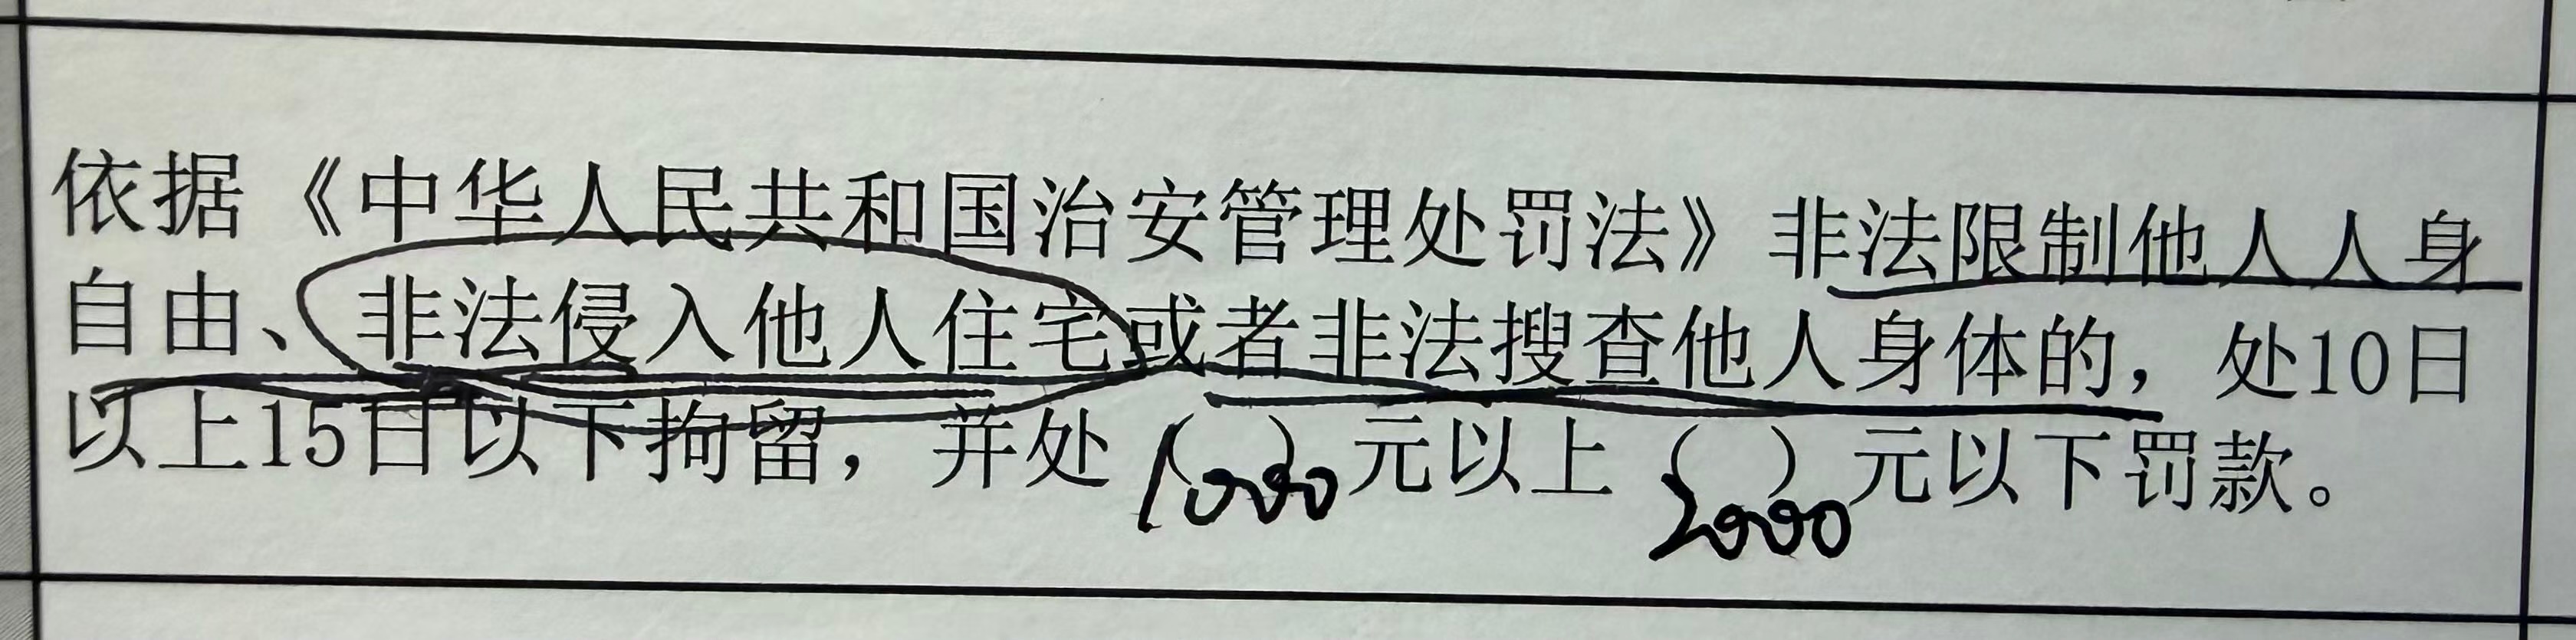 依据《中华人民共和国治安管理处罚法》非法限制他人人身
自由、非法侵入他人住宅或者非法搜查他人身体的，处10日
以上15日以下拘留，并处（1000）元以上（2000）元以下罚款。